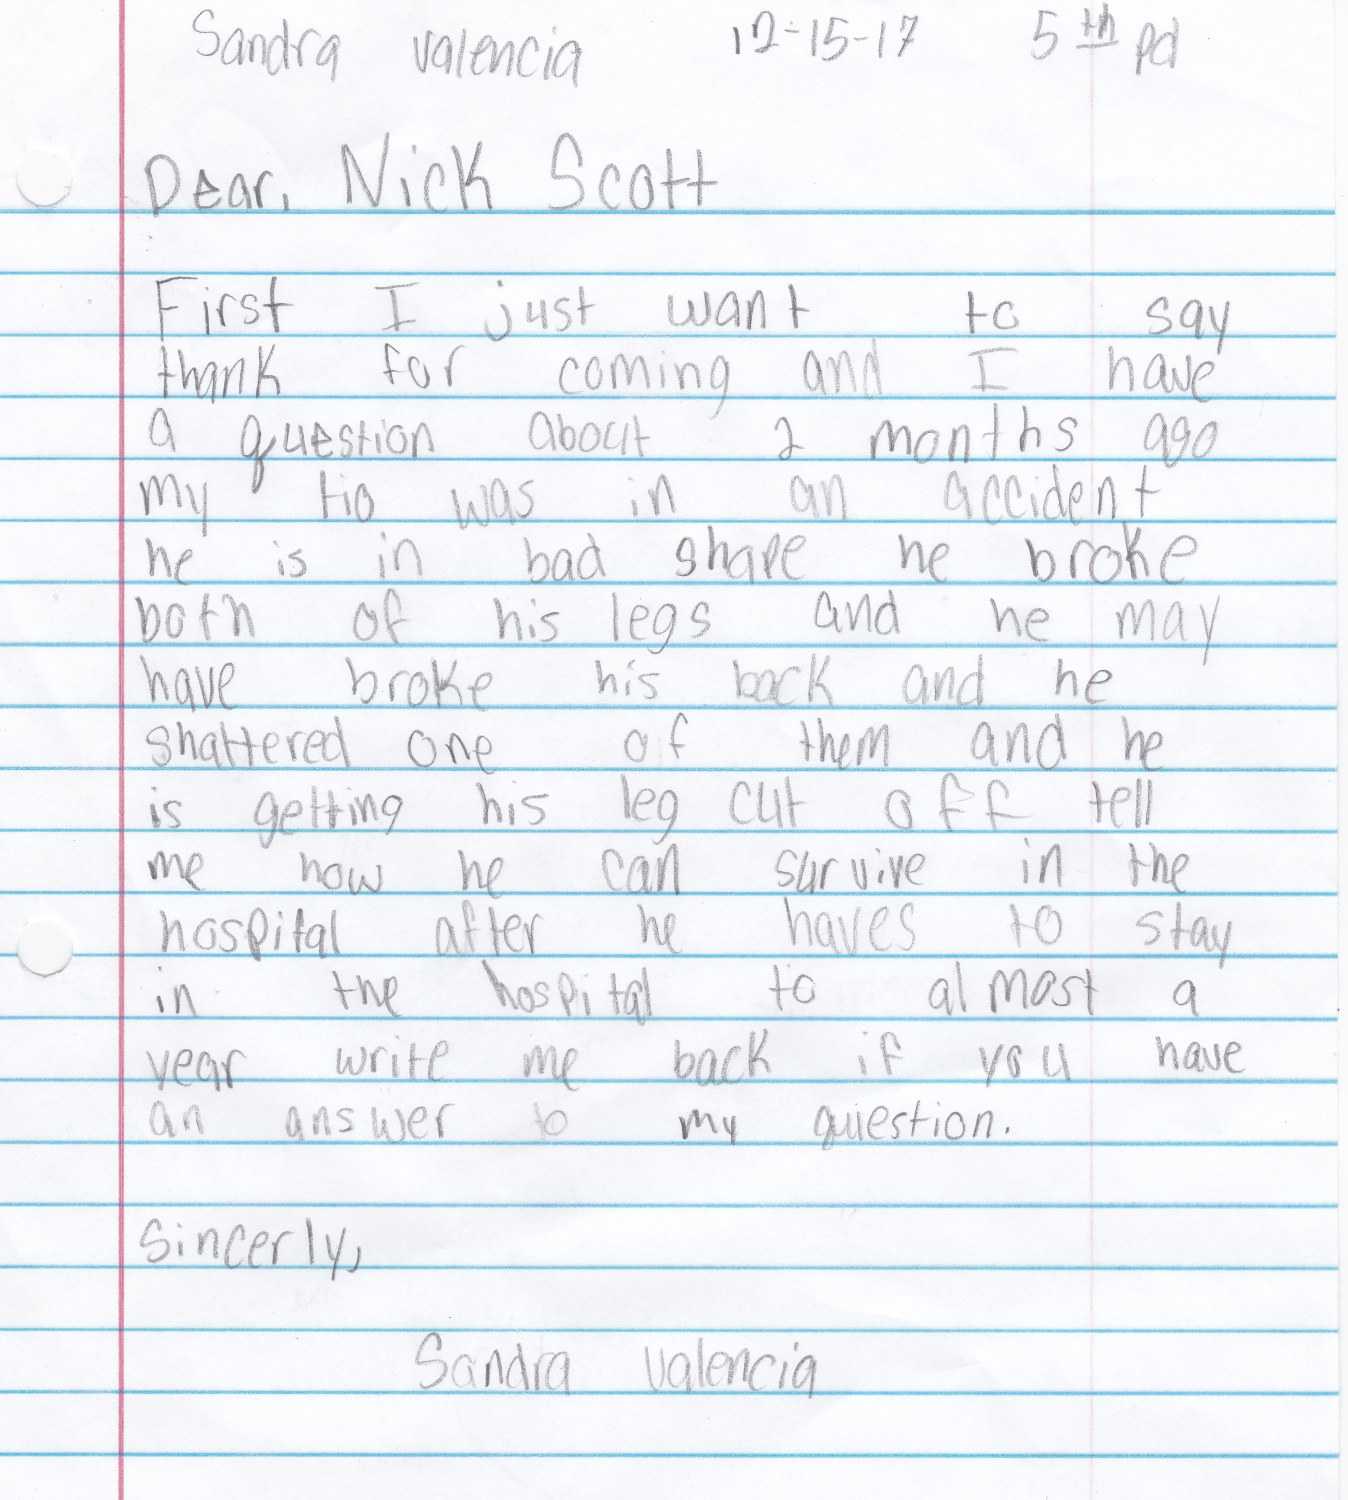 Sandra valencia 12-15-17 5th pd
Dear, Nick Scott
First I just want to say
thank for coming and I have
a question about 2 months ago
my tio was in an accident
he is in bad shape he broke
both of his legs and he may
have broke his back and he
shattered one of them and he
is getting his leg cut off tell
me how he can survive in the
hospital after he haves to stay
in the hospital to almost a
year write me back if you have
an answer to my question.
Sincerly,
Sandra valencia